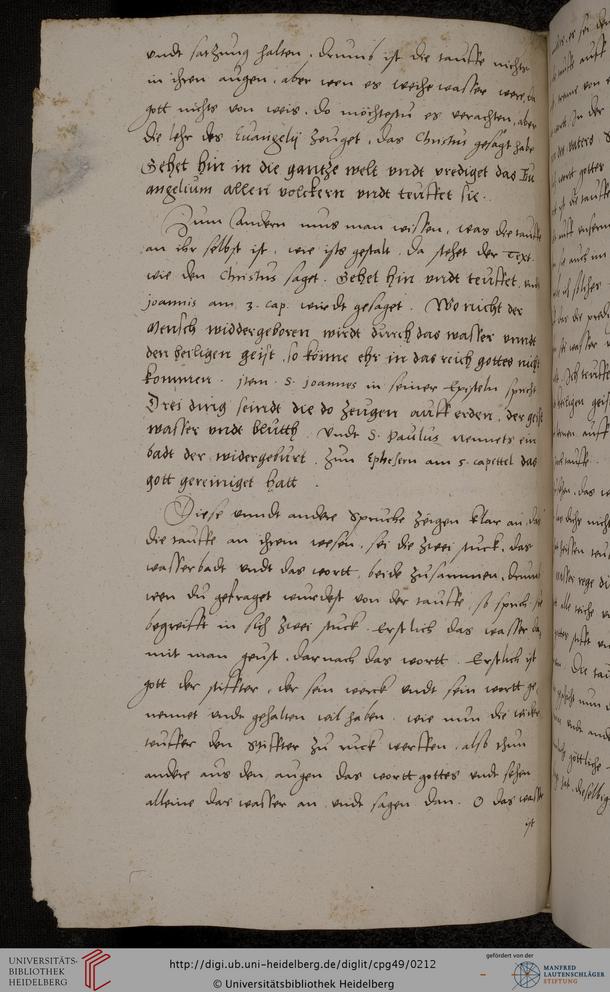 vnndt satzung halten. drumb ist die tauffe nichts
in ihren augen, aber wen es weihe wasser were, da
gott nichts von weis, do möchtestu es verachten, aber
die lehr des Euangelij zeuget, das Christus gesagt habe
Gehet hin in die gantze welt vndt prediget das Eu
angelium allen volckern vndt teuffet sie.
Zum Andern mus man wissen, was die tauffe
an ihr selbst ist, wie ists gestalt. da stehet der Text
wie den Christus saget. Gehet hin vndt teuffet, vnd
joannis am 3. cap. wirdt gesaget. Wo nicht der
Mensch widdergeboren wirdt durch das wasser vnndt
den heiligen geist, so könne ehr in das reich gottes nicht
kommen. jtem S. joannes in seiner Episteln spricht
Drei ding seindt die do zeugen auff erden, der geist
wasser vndt blutth. vndt S. Paulus nennets ein
badt der widergeburt. Zun Ephesern am 5. capittel das
gott gereiniget hatt.
Diese vnndt andere spruche zeigen klar an, das
die tauffe an ihrem wesen, sei die zwei stuck, das
wasserbadt vndt das wortt, beide zusammen, drumb
wen du gefraget wurdest von der tauffe, so sprich, sie
begreifft in sich zwei stuck. Erstlich das wasser da
mit man geust, darnach das wortt. Erstlich ist
gott der stiffter, der sein werck vndt sein wortt ge
nennet vndt gehalten wil haben. wie nun die wider
teuffer den Stiffter zu ruck werffen, also thun
andere aus den augen das wortt gottes vndt sehen
alleine das wasser an vndt sagen dan. O das wasser
ist
UNIVERSITÄTS-
BIBLIOTHEK
HEIDELBERG
http://digi.ub.uni-heidelberg.de/diglit/cpg49/0212
© Universitätsbibliothek Heidelberg
gefördert von der
MANFRED
LAUTENSCHLÄGER
STIFTUNG